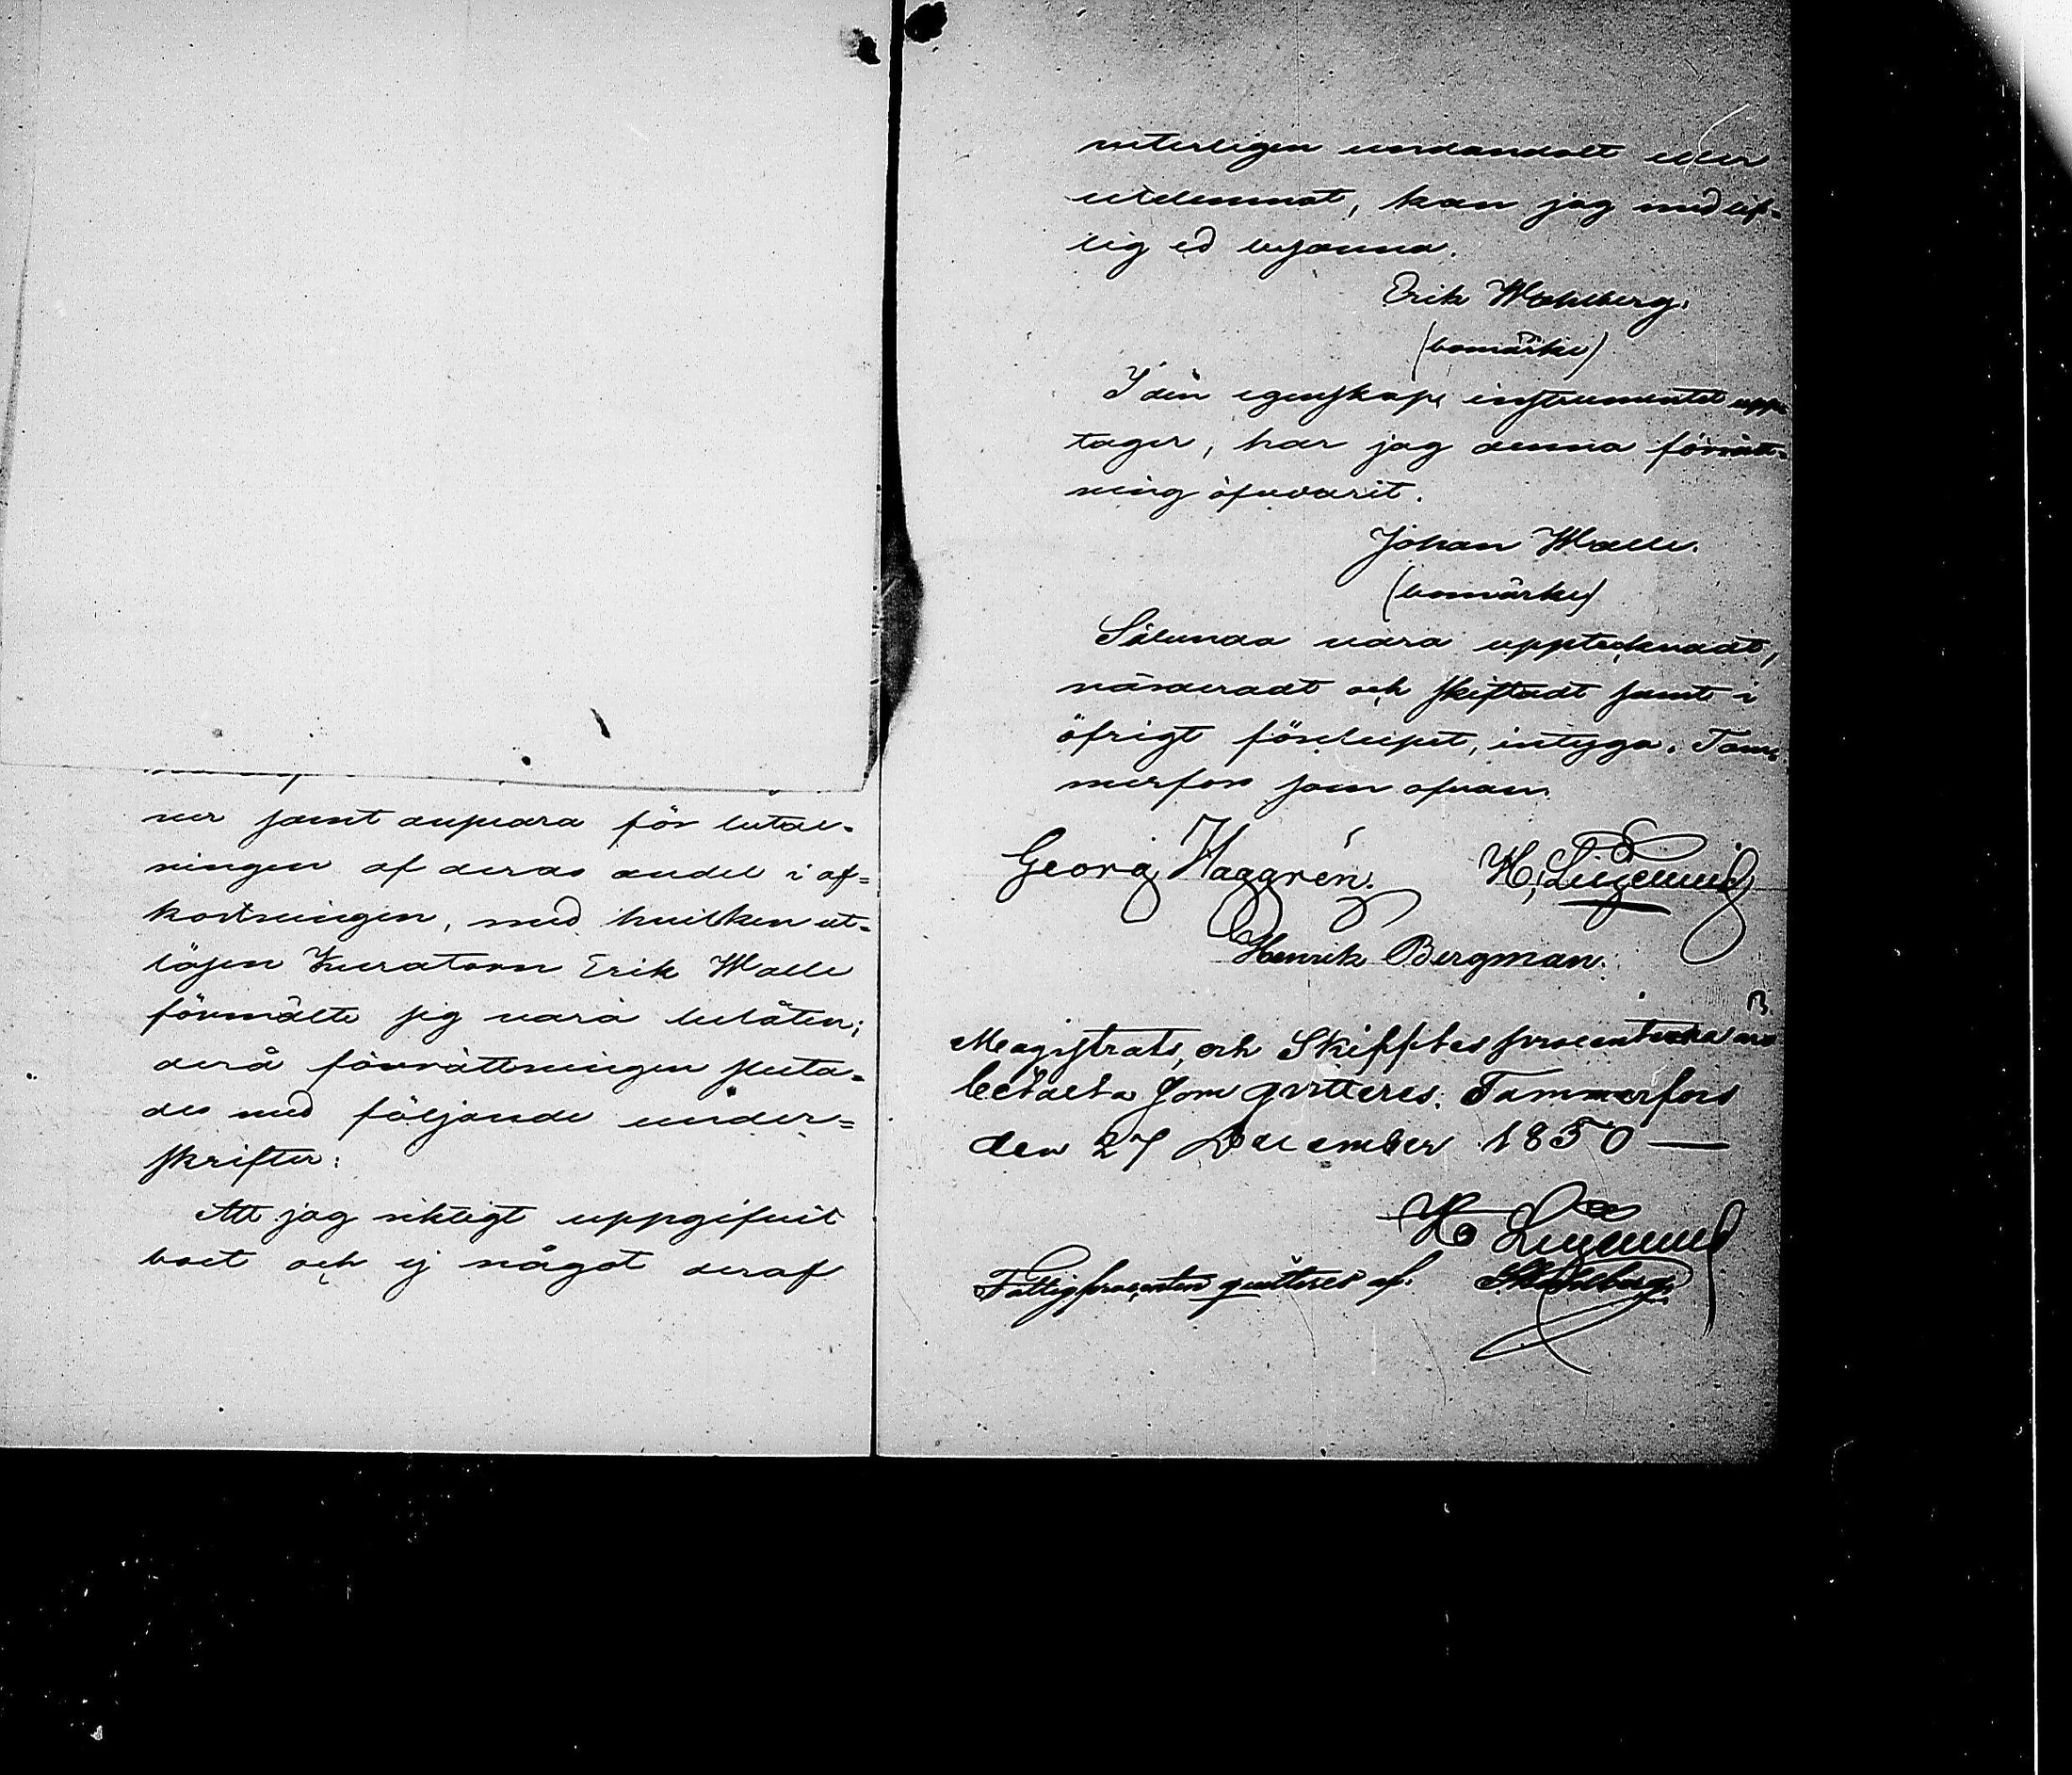 ner samt ansvara för betal-
ningen af deras andel i af-
kortningen, med hvilken ut-
lösen Kuratorn Erik Walle
förmälte sig vara belåten;
derå förrättningen sluta-
des med följande under-
skrifter:
Att jag riktigt uppgifvit
boet och ej något deraf
veterligen undandolt eller
utelemnat, kan jag med lif-
lig ed besanna.
Erik Wahlberg.
(bomärke)
I den egenskap, instrumentet upp-
tager, har jag denna förrätt-
ning öfvervarit.
Johan Walle.
(bomärke)
Sålunda vara upptecknadt,
värderadt och skiftadt samt i
öfrigt förelupet, intyga. Tam-
merfors som ofvan.
Georg Haggrén. H;
Henrik Bergman.
Magistrats, och Skifftes procenterna äro
betalta som qvitteres. Tammerfors
den 27 December 1850 —
H
Fattigprocenten quitteres af: